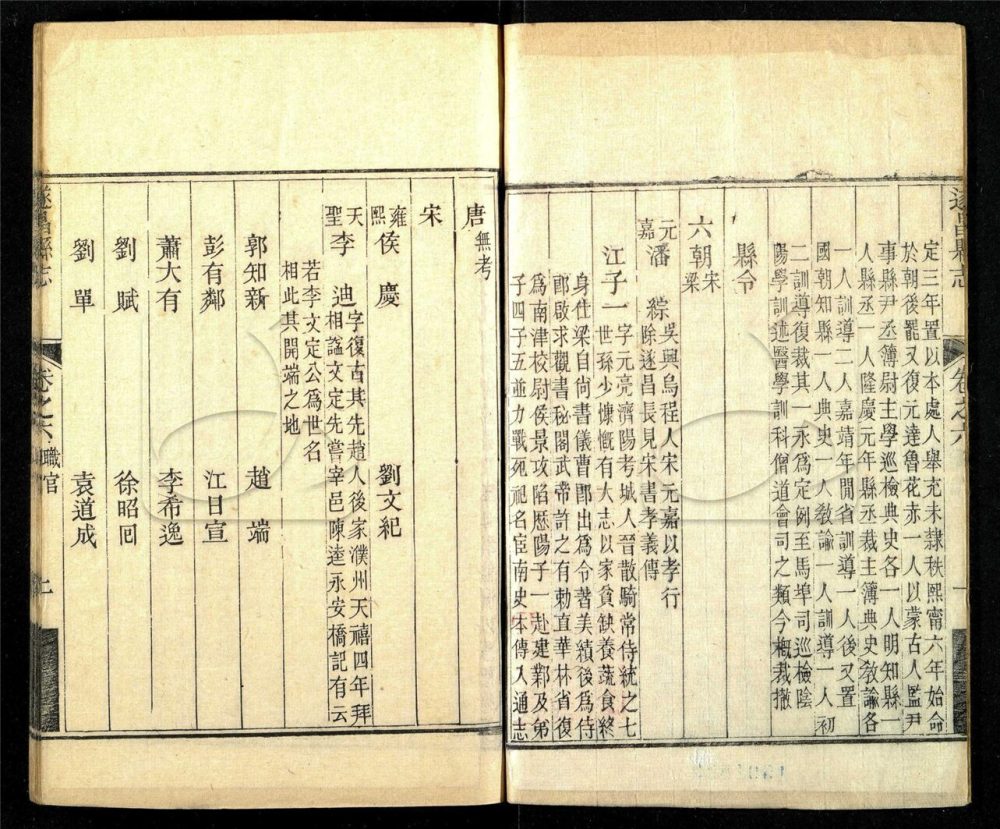 遂昌縣志
卷之六
一
定三年置以本處人舉充未隸秩熙甯六年始命
於朝後罷又復元達魯花赤一人以蒙古人監尹
事縣尹丞簿尉主學巡檢典史各一人明知縣一
人縣丞一人隆慶元年縣丞裁主簿典史敎諭各
一人訓導二人嘉靖年閒省訓導一人後又置
國朝知縣一人典史一人敎諭一人訓導一人初
二訓導復裁其一永爲定例至馬埠司巡檢陰
陽學訓述醫學訓科僧道會司之類今概裁撤
縣令
六朝宋梁
元嘉潘綜吳興烏程人宋元嘉以孝行
除遂昌長見宋書孝義傳
江子一字元亮濟陽考城人晉散騎常侍統之七
世孫少慷慨有大志以家貧缺養蔬食終
身仕梁自尚書儀曹郎出爲令著美績後爲侍
郎啟求觀書秘閣武帝許之有勅直華林省復
爲南津校尉侯景攻陷歷陽子一赴建鄴及弟
子四子五並力戰死祀名宦南史本傳入通志
唐無考
宋
雍熙侯慶 劉文紀
天聖李迪字復古其先趙人後家濮州天禧四年拜
相諡文定先嘗宰邑陳逵永安橋記有云
若李文定公爲世名
相此其開端之地
郭知新 趙端
彭有鄰 江日宣
蕭大有 李希逸
劉賦 徐昭回
劉單 袁道成
遂昌縣志
卷之六
職官